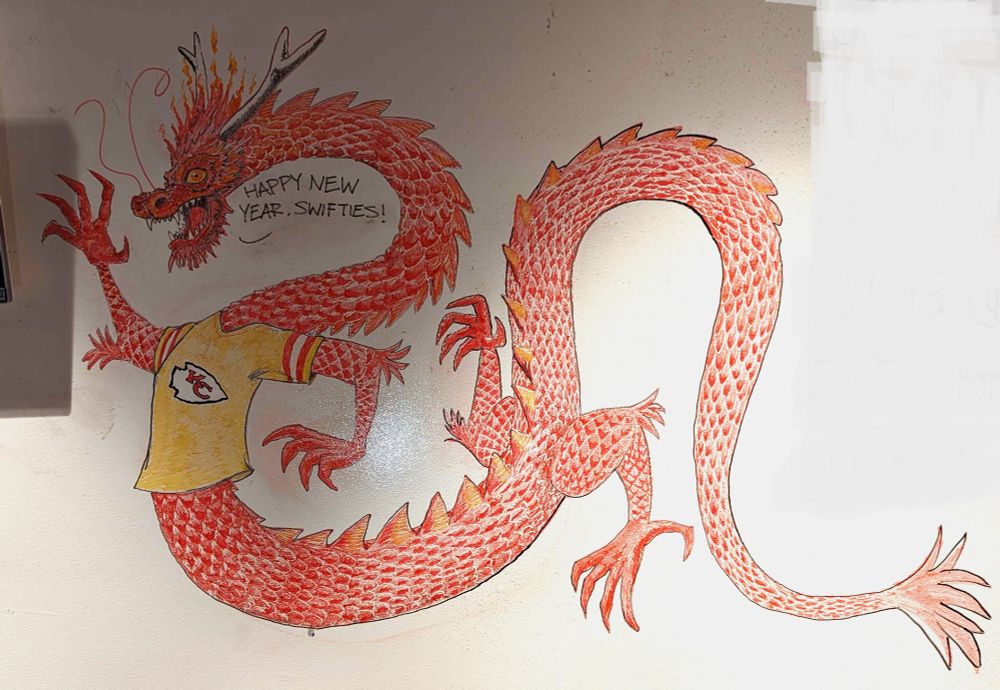 HAPPY NEW
YEAR, SWIFTIES!
KC